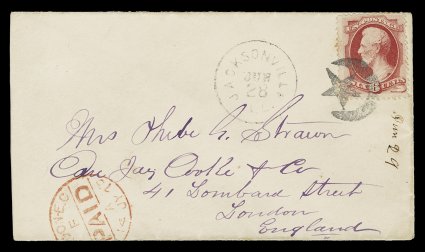 JACKSONVILLE
JUN
28
Mrs Phebe G. Strawn
Care Jay Cooke & Co
41 Lombard Street
London
England
PAID
Jun 29